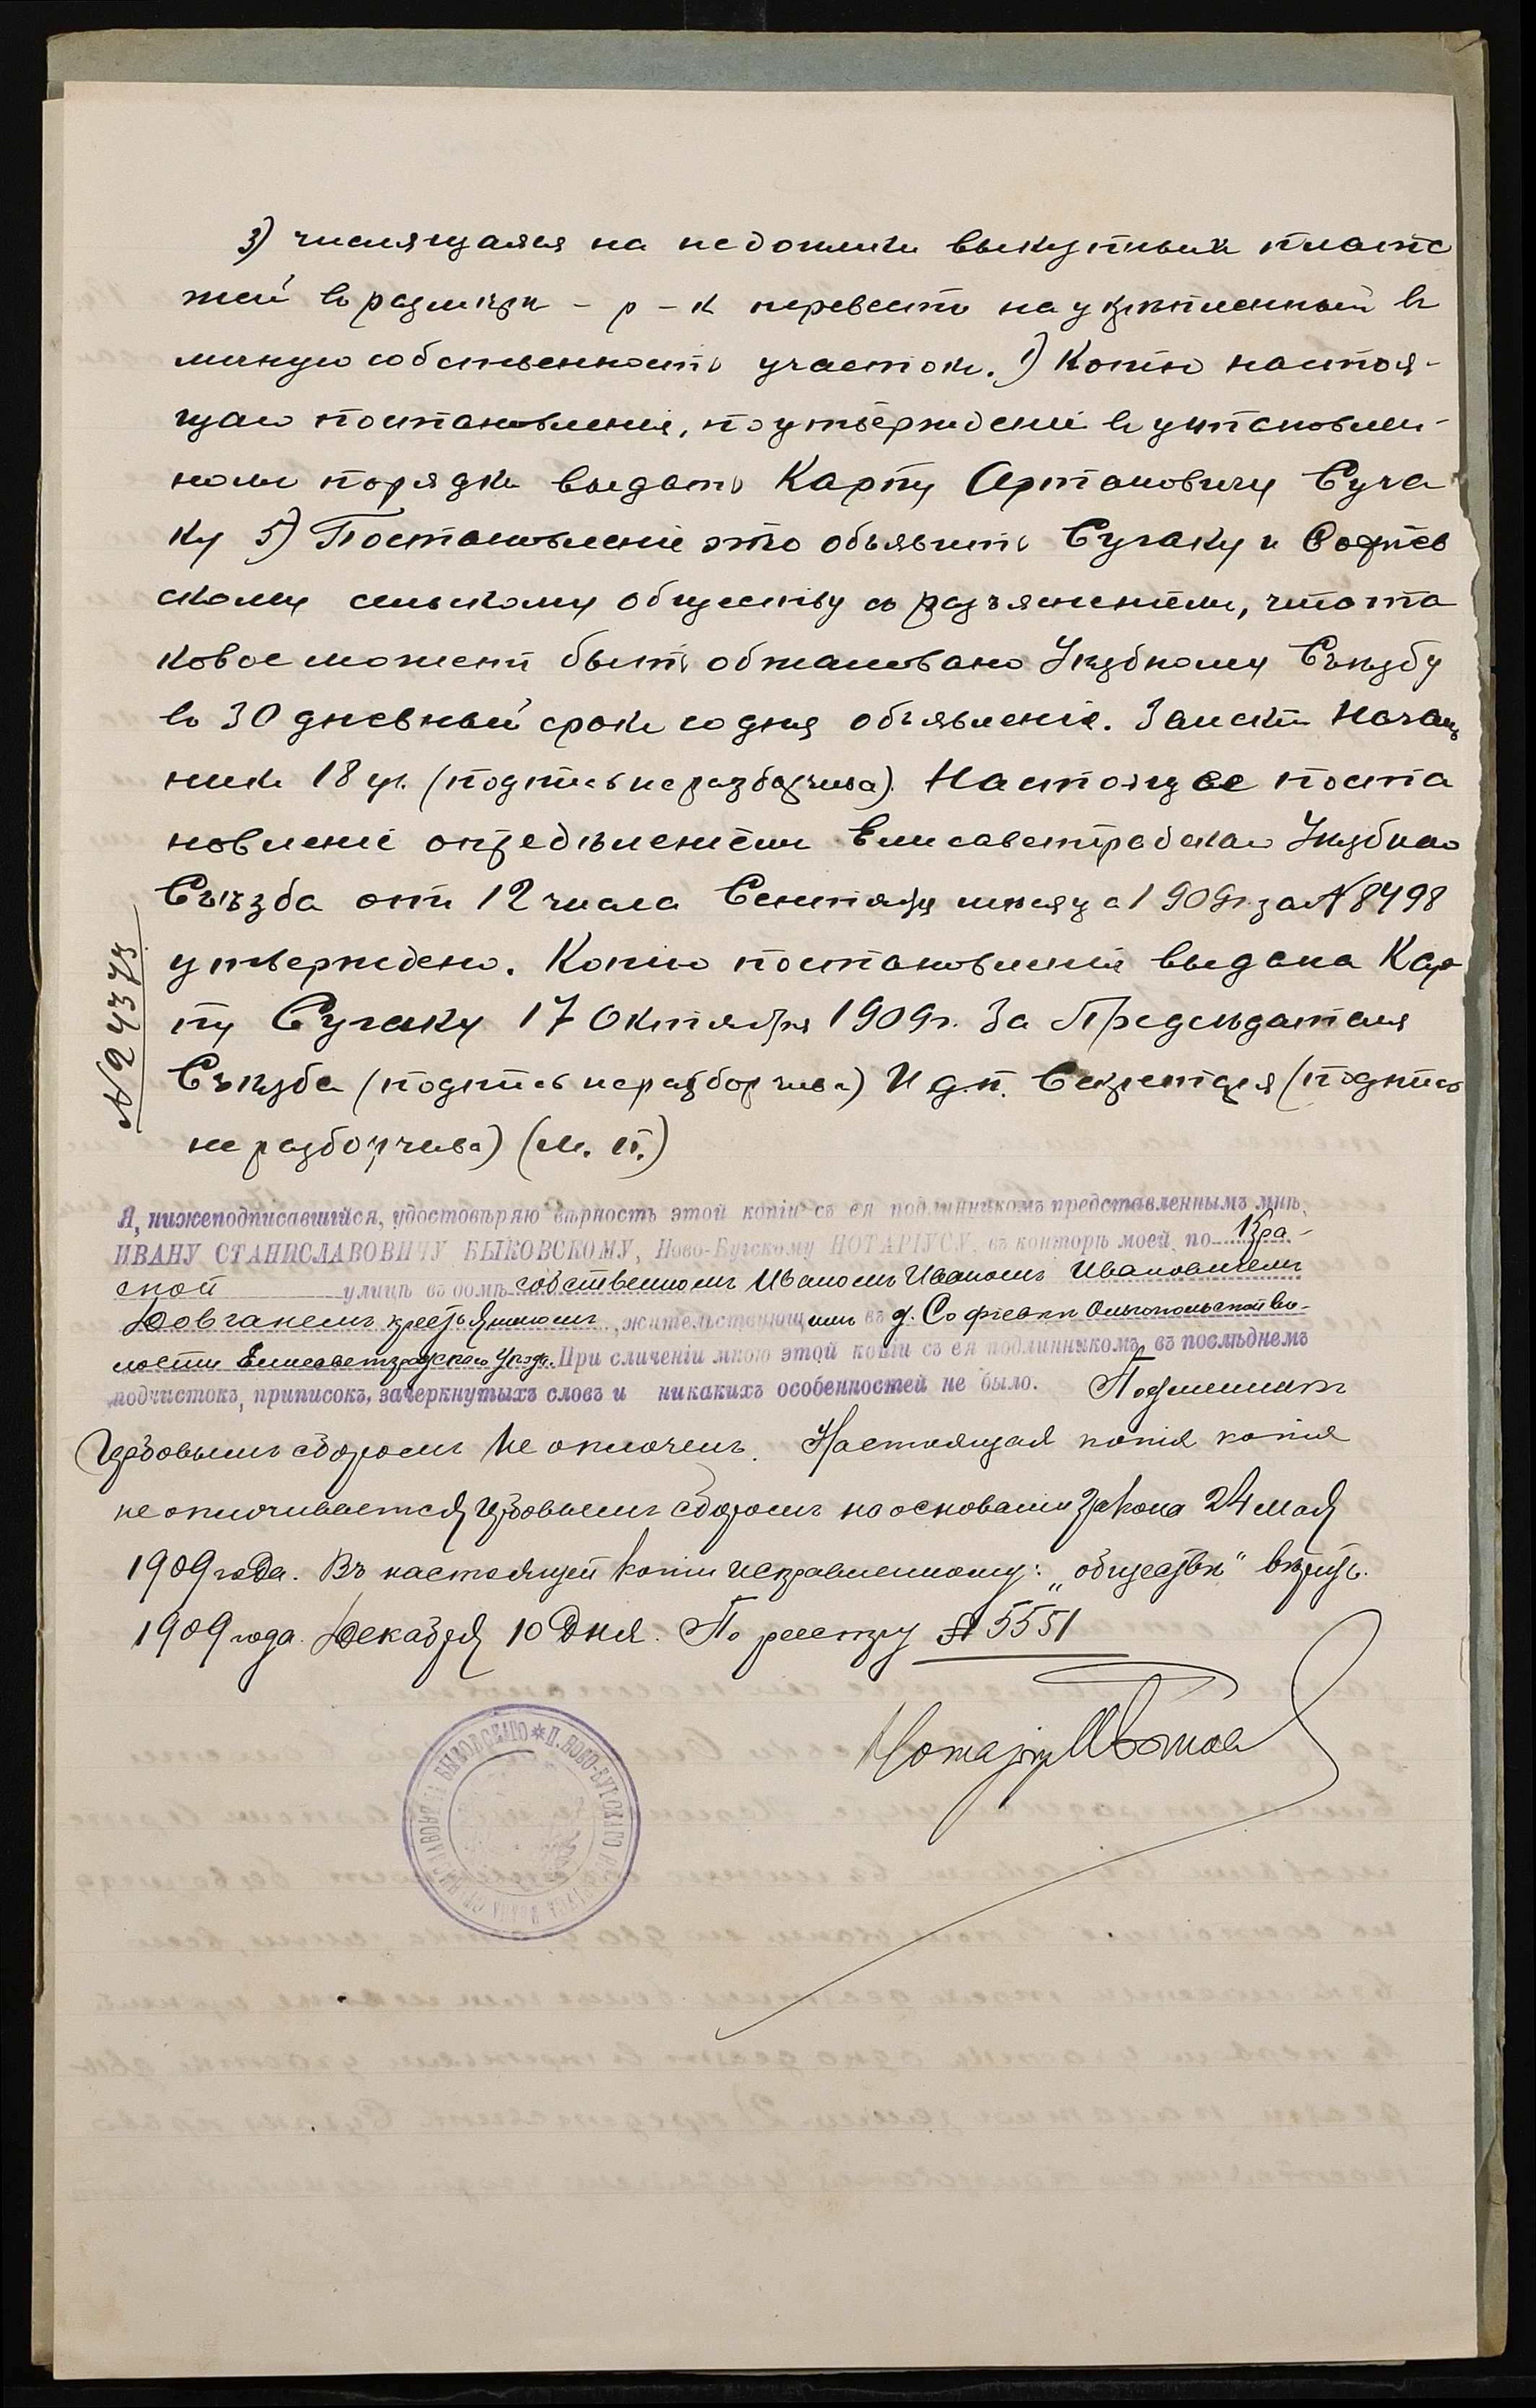 3) числящаяся на недоимки выкупныхъ плате
жей въ размѣрѣ - р - к перевести на укрѣпленный въ
личную собственность участокъ. 1) Копію настоя-
щаго постановленія, по утвержденіи въ установлен-
номъ порядкѣ выдать Карпу Артамовичу Суча
ку 5) Постановленіе это объявить Сучаку и Софіев
скому сельскому обществу съ разъясненіемъ, что та
ковое можетъ быть обжаловано Уѣздному Съѣзду
въ 30 дневный срокъ со дня объявленія. Земскій Началь
никъ 18 уч. (подпись неразборчива). Настоящее поста
новленіе опредѣленіемъ Елисаветградскаго Уѣзднаго
Съѣзда отъ 12 числа Сентября мѣсяца 1909 г. за № 8498
утверждено. Копію постановленія выдана Кар
пу Сучаку 17 Октября 1909 г. За Предсѣдателя
Съѣзда (подпись неразборчива) И.д.п. Секретаря (подпись
неразборчива) (М. П.)
№ 24373
Я, нижеподписавшійся, удостовѣряю вѣрность этой копіи съ ея подлинникомъ представленнымъ мнѣ,
ИВАНУ СТАНИСЛАВОВИЧУ БЫКОВСКОМУ, Ново-Бугскому НОТАРІУСУ, въ конторѣ моей, по
ской улицѣ въ домѣ собственномъ Иваномъ Иваномъ Ивановичемъ
Довганемъ крестьяниномъ, жительствующимъ въ д. Софіевкѣ Ольгопольской во-
лости Елисаветградскаго Уѣзда. При сличеніи мною этой копіи съ ея подлинникомъ, въ послѣднемъ
подчистокъ, приписокъ, зачеркнутыхъ словъ и никакихъ особенностей не было. Подлинникъ
гербовымъ сборомъ не оплоченъ. Настоящая копія копія
не оплочивается гербовымъ сборомъ на основаніи закона 24 мая
1909 года. Въ настоящей копіи исправленному: „обществѣ" вѣрить.
1909 года. Декабря 10 дня. По реестру № 5551
Нотаріусъ
СТАНИСЛАВОВИЧА БЫКОВСКАГО * П. НОВО-БУГСКАГО НОТАРІУСА ИВАНА